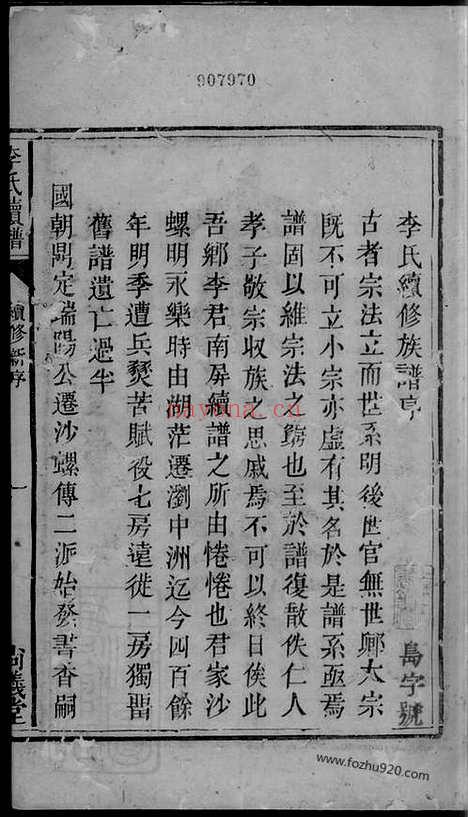 907970
李氏續修族譜序
古者宗法立而世系明後世官無世卿大宗
既不可立小宗亦虛有其名於是譜系亟焉
譜固以維宗法之窮也至於譜復散佚仁人
孝子敬宗收族之思戚焉不可以終日俟此
吾鄉李君南屏續譜之所由惓惓也君家沙
螺明永樂時由湖茫遷瀏中洲迄今四百餘
年明季遭兵燹苦賦役七房遠徙一房獨留
舊譜遺亡過半
國朝鼎定瑞陽公遷沙螺傳二派始發書香嗣
李氏續譜
續修新序
一
尚義堂
島字號
nayona.cn
www.fozhu920.com